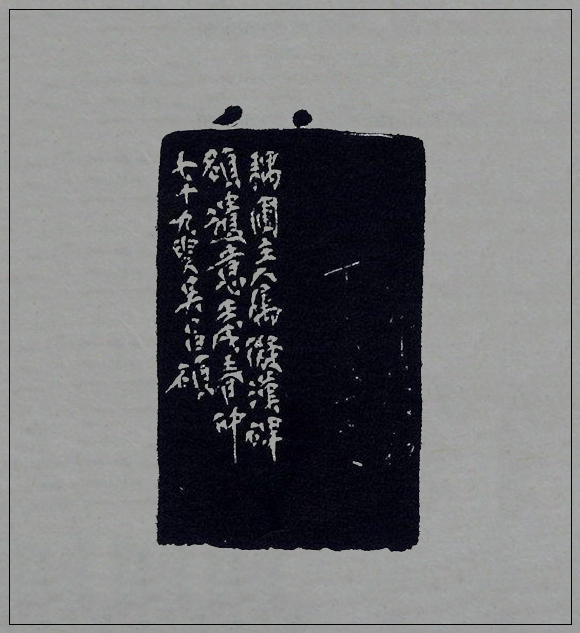 耦圃主人屬擬漢碑
額遺意壬戌春仲
七十九叟吳昌碩